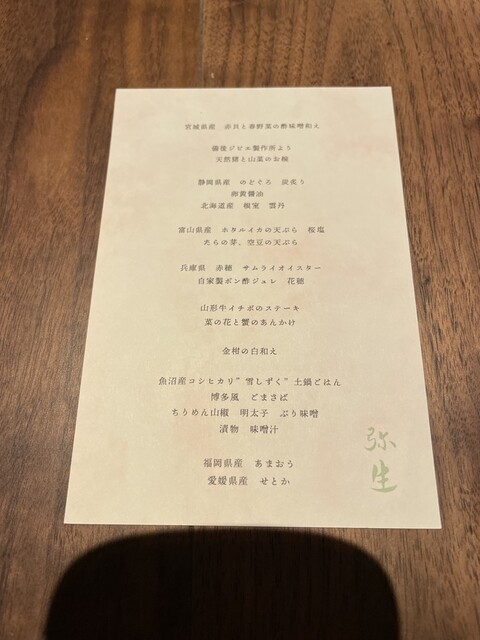 宮城県産　赤貝と春野菜の酢味噌和え
備後ジビエ製作所より
天然猪と山菜のお椀
静岡県産　のどぐろ　炭炙り
卵黄醤油
北海道産　根室　雲丹
富山県産　ホタルイカの天ぷら　桜塩
たらの芽、空豆の天ぷら
兵庫県　赤穂　サムライオイスター
自家製ポン酢ジュレ　花穂
山形牛イチボのステーキ
菜の花と蟹のあんかけ
金柑の白和え
魚沼産コシヒカリ”雪しずく”土鍋ごはん
博多風　ごまさば
ちりめん山椒　明太子　ぶり味噌
漬物　味噌汁
福岡県産　あまおう
愛媛県産　せとか
弥生